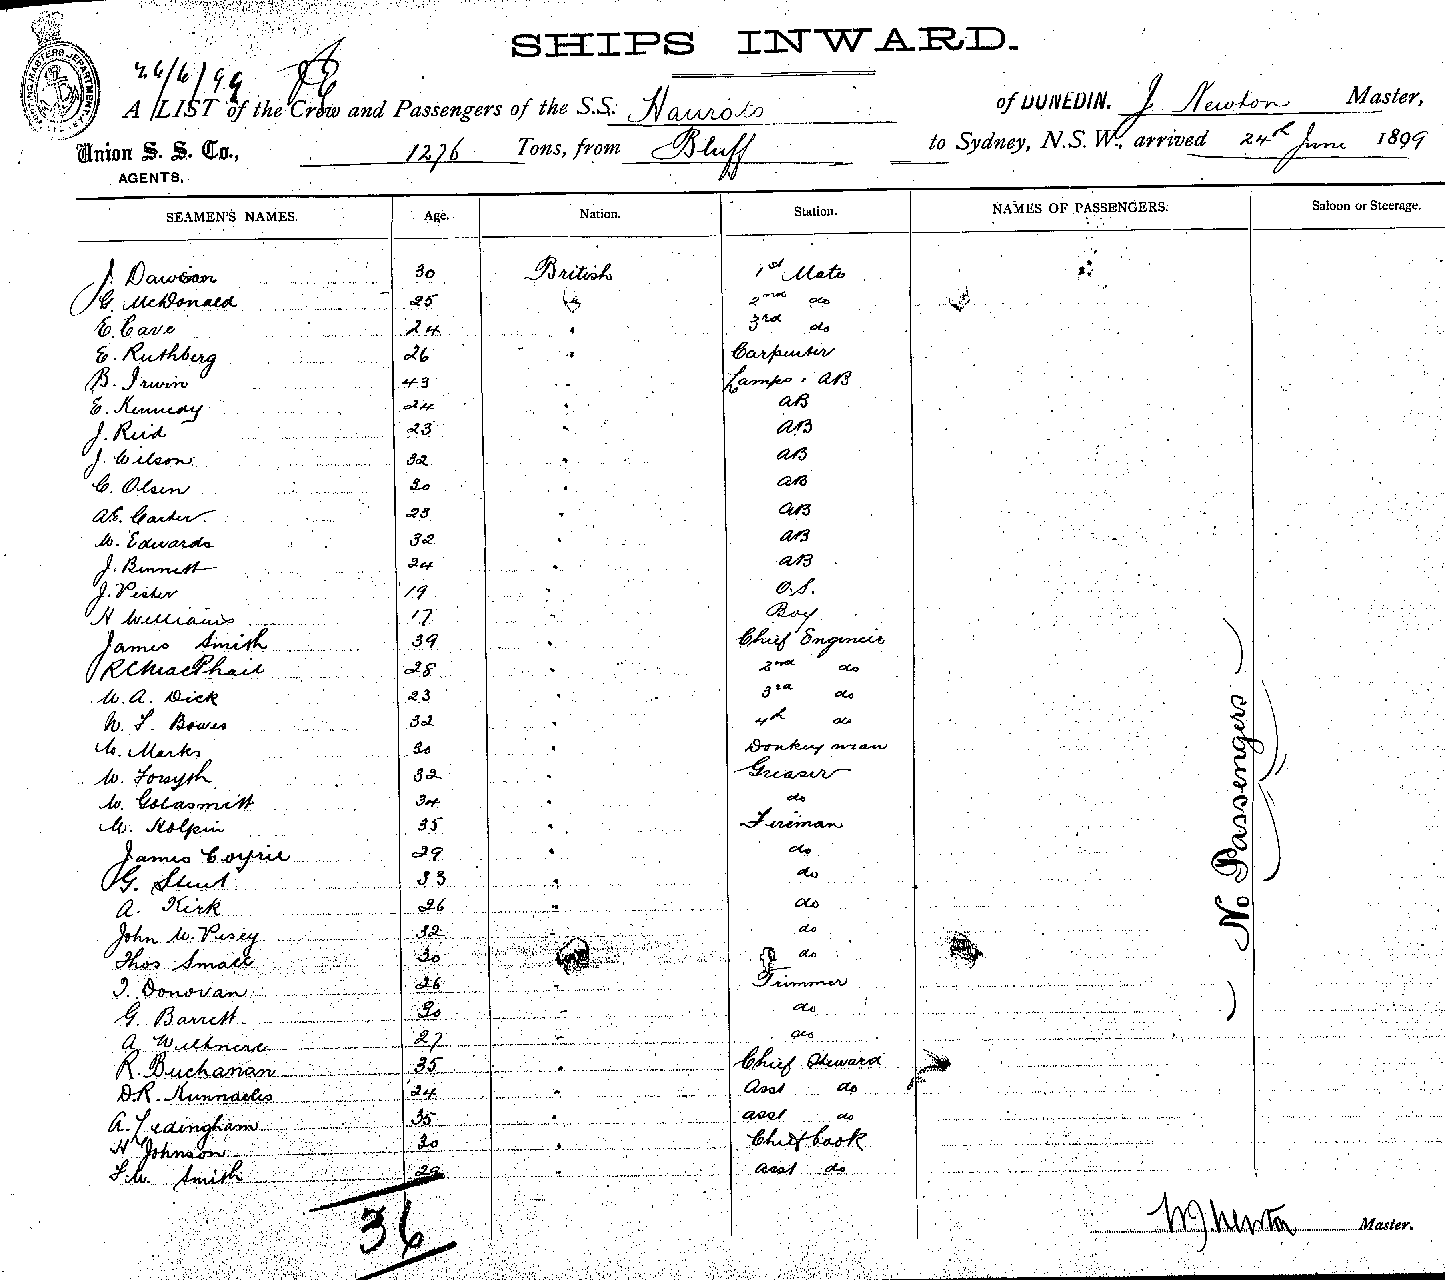 SHIPS INWARD.
26/6/99
A LIST of the Crew and Passengers of the S.S. Hauroto of DUNEDIN. J Newton Master,
Union S. S. Co., AGENTS, 1276 Tons, from Bluff to Sydney, N.S.W., arrived 24th June 1899
SEAMEN'S NAMES. Age. Nation. Station. NAMES OF PASSENGERS. Saloon or Steerage.
J. Dawson 30 British 1st Mate
G. McDonald 25 " 2nd do
E. Cave 24 " 3rd do
E. Ruthberg 26 " Carpenter
B. Irwin 43 " Lamps & AB
E. Kennedy 24 " AB
J. Reid 23 " AB
J. Wilson 32 " AB
C. Olsen 30 " AB
AE. Carter 23 " AB
W. Edwards 32 " AB
J. Bennett 24 " AB
J. 19 " O.S.
H Williams 17 " Boy
James Smith 39 " Chief Engineer
R C MacPhail 28 " 2nd do
W. A. Dick 23 " 3rd do
W. F. Bowes 32 " 4th do
W. Marks 30 " Donkeyman
W. Forsyth 32 " Greaser
W. Goldsmith 34 " do
W. Holpin 35 " Fireman
James 29 " do
G. Stent 33 " do
A. Kirk 26 " do
John W. Pesey 32 " do
Thos Small 30 " do
T. Donovan 26 " Trimmer
G. Barrett 30 " do
A 27 " do
R. Buchanan 35 " Chief Steward
D.R. 24 " Asst do
A. Tedingham 35 " asst do
H Johnson 30 " Chief Cook
F. W. Smith 29 " asst do
36
No Passengers
W J Newton Master.